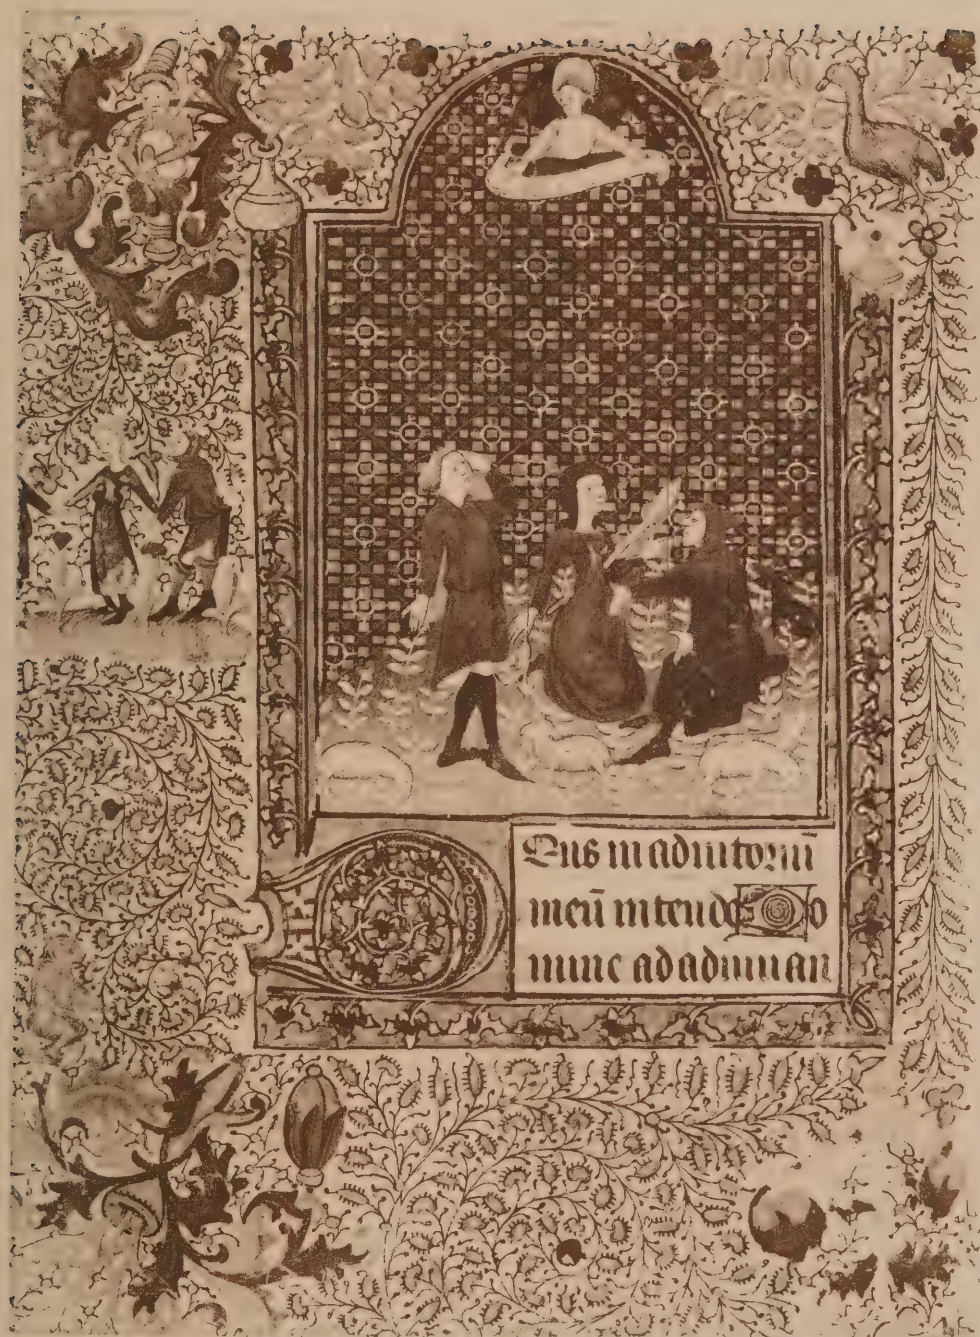 DEus in adiutoriū
meū intende Do
mine ad adiuuan